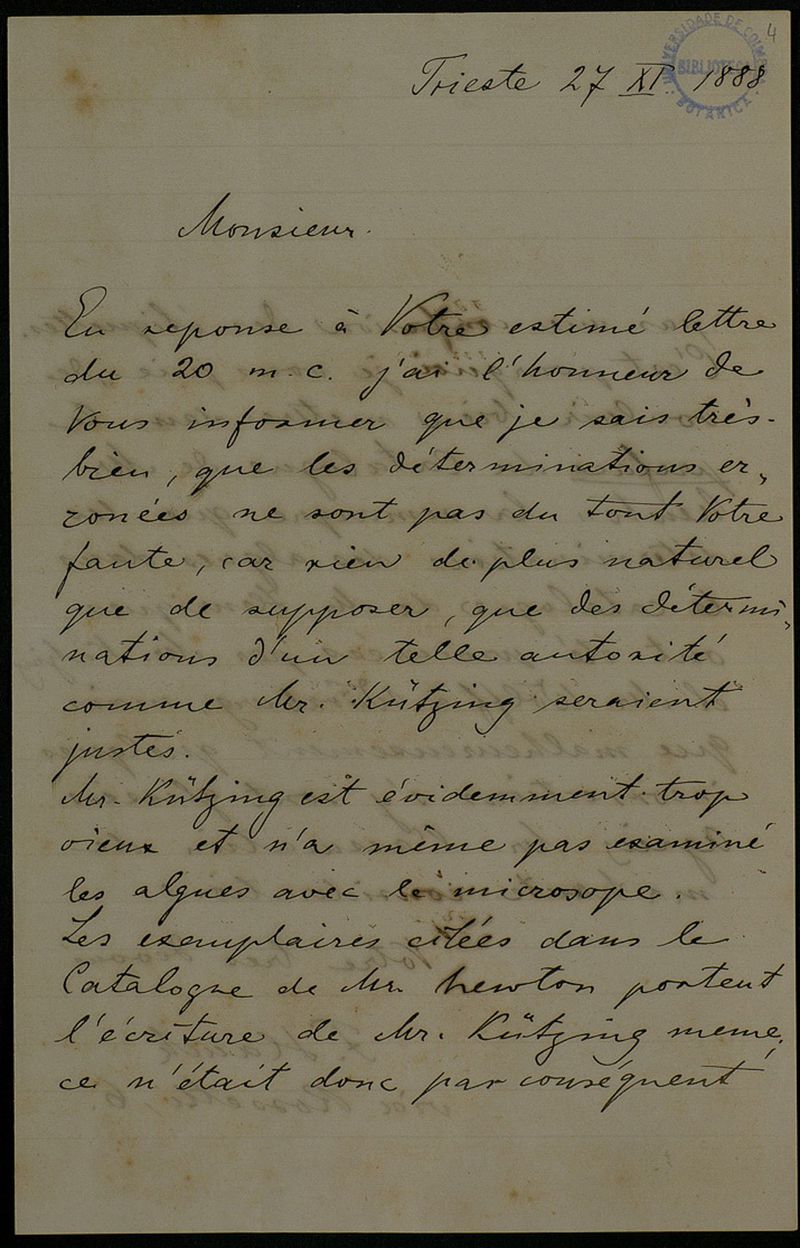 4
UNIVERSIDADE DE COIMBRA
BIBLIOTECA
BOTANICA
Trieste 27 XI. 1888
Monsieur.
En reponse à Votre estimé lettre
du 20 m. c. j'ai l'honneur de
Vous informer que je sais très-
bien, que les déterminations er„
ronées ne sont pas du tout Votre
faute, car rien de plus naturel
que de supposer, que des détermi„
nations d'un telle autorité
comme Mr. Kützing seraient
justes.
Mr. Kützing est évidemment trop
vieux et n'a même pas examiné
les algues avec le microsope.
Les exemplaires citées dans le
Catalogue de Mr. Newton portent
l'écriture de Mr. Kützing meme,
ce n'était donc par conséquent